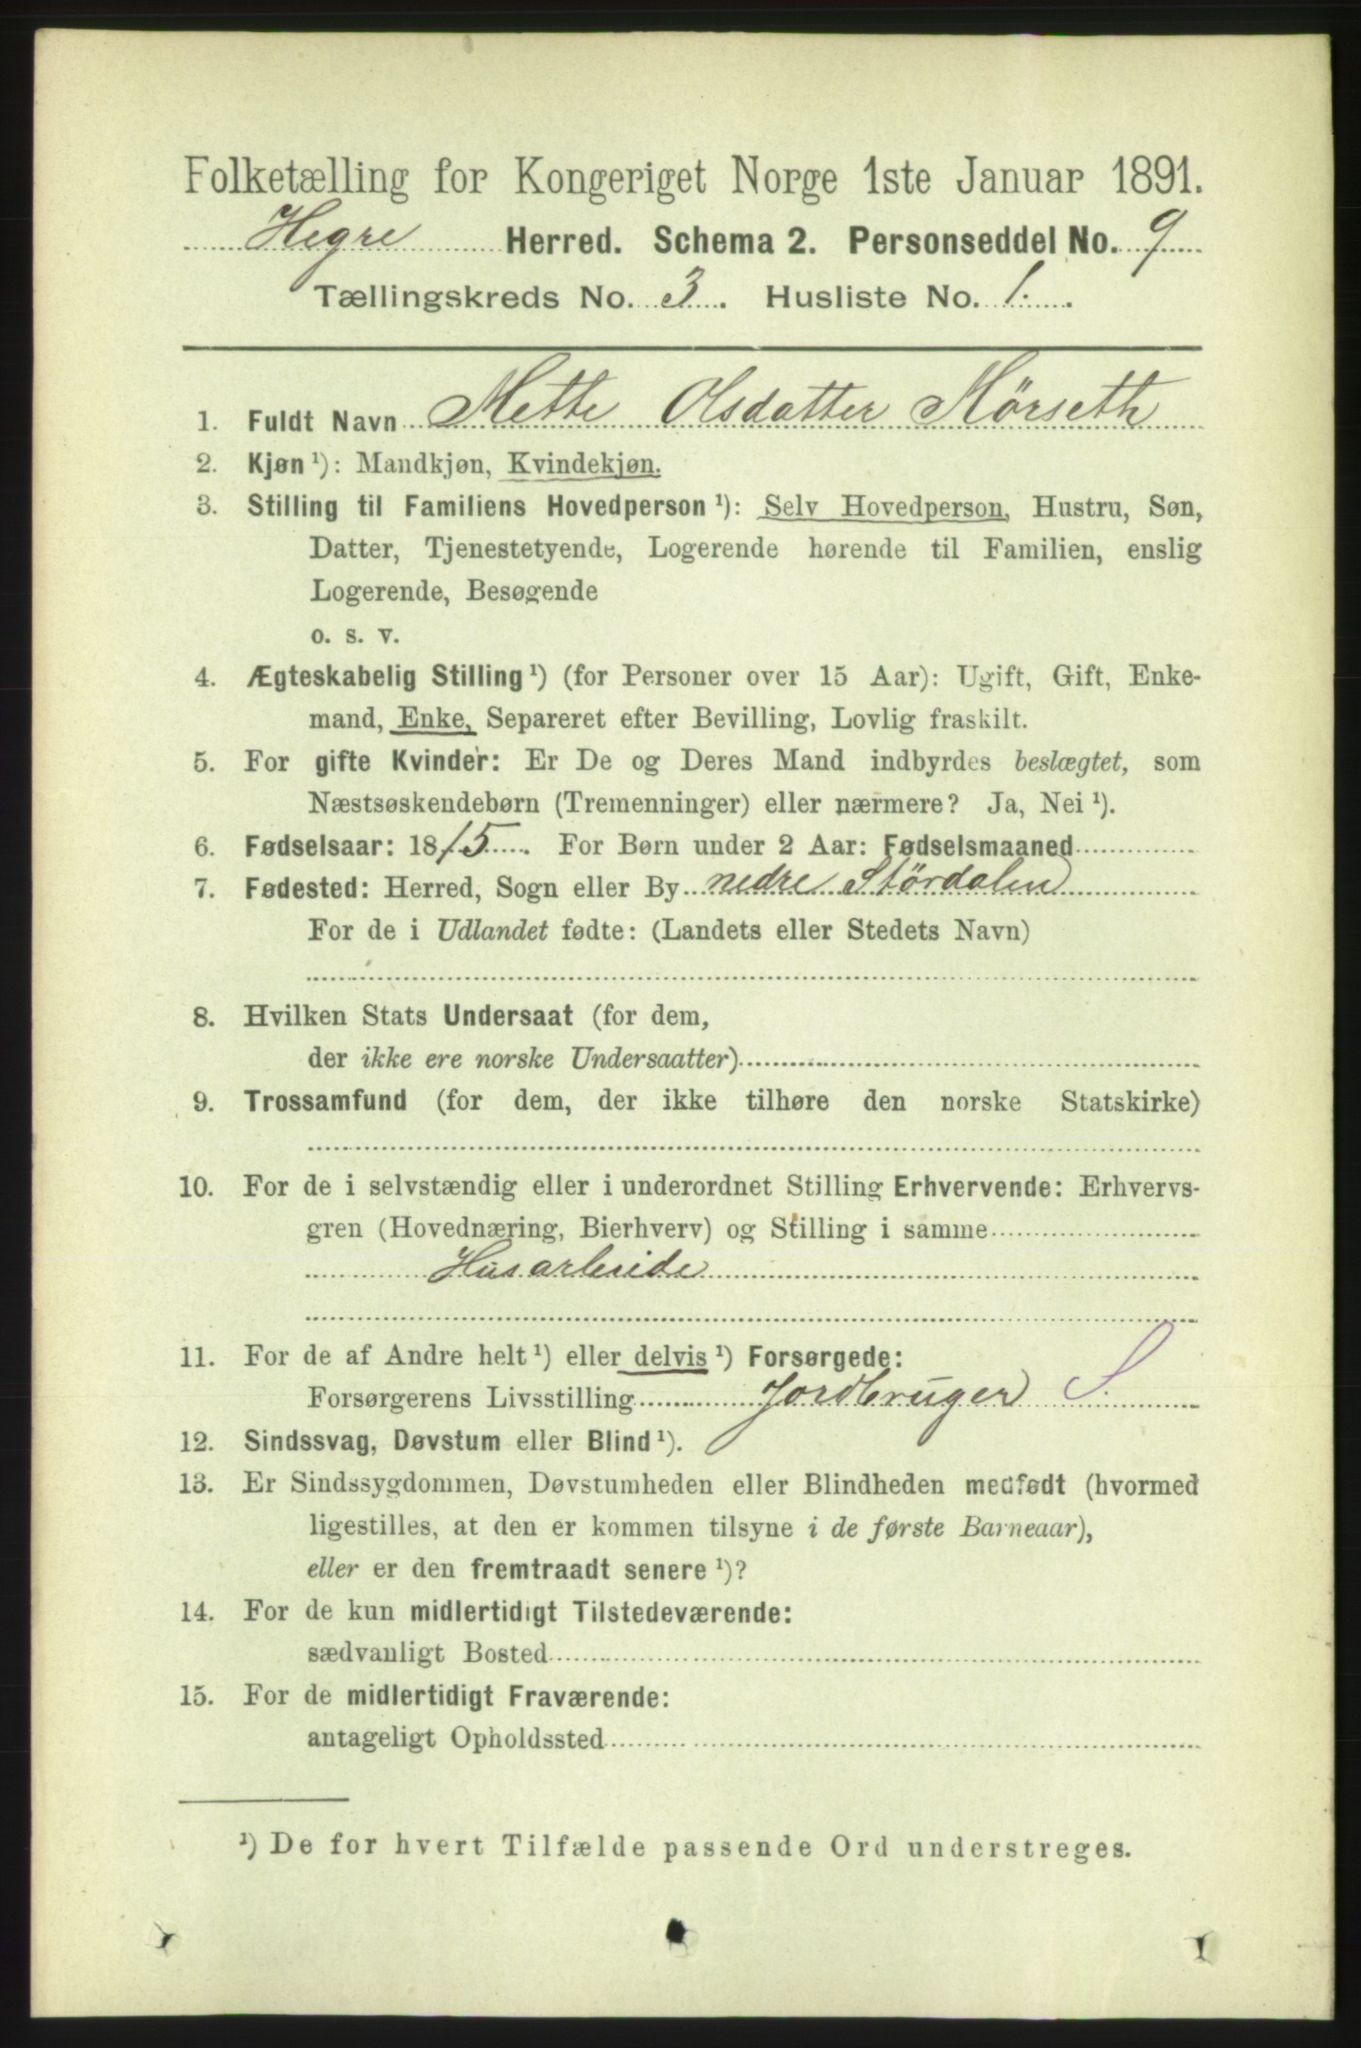 Folketælling for Kongeriget Norge 1ste Januar 1891.
Hegre Herred. Schema 2. Personseddel No. 9
Tællingskreds No. 3. Husliste No. 1.
1. Fuldt Navn Mette Olsdatter Mörseth
2. Kjøn ¹): Mandkjøn, Kvindekjøn.
3. Stilling til Familiens Hovedperson ¹): Selv Hovedperson, Hustru, Søn,
Datter, Tjenestetyende, Logerende hørende til Familien, enslig
Logerende, Besøgende
o. s. v.
4. Ægteskabelig Stilling ¹) (for Personer over 15 Aar): Ugift, Gift, Enke-
mand, Enke, Separeret efter Bevilling, Lovlig fraskilt.
5. For gifte Kvinder: Er De og Deres Mand indbyrdes beslægtet, som
Næstsøskendebørn (Tremenninger) eller nærmere? Ja, Nei ¹).
6. Fødselsaar: 1815. For Børn under 2 Aar: Fødselsmaaned
7. Fødested: Herred, Sogn eller By nedre Störдalen
For de i Udlandet fødte: (Landets eller Stedets Navn)
8. Hvilken Stats Undersaat (for dem,
der ikke ere norske Undersaatter)
9. Trossamfund (for dem, der ikke tilhøre den norske Statskirke)
10. For de i selvstændig eller i underordnet Stilling Erhvervende: Erhvervs-
gren (Hovednæring, Bierhverv) og Stilling i samme
Husarbeide
11. For de af Andre helt ¹) eller delvis ¹) Forsørgede:
Forsørgerens Livsstilling Jordbruger S.
12. Sindssvag, Døvstum eller Blind ¹).
13. Er Sindssygdommen, Døvstumheden eller Blindheden medfødt (hvormed
ligestilles, at den er kommen tilsyne i de første Barneaar),
eller er den fremtraadt senere ¹)?
14. For de kun midlertidigt Tilstedeværende:
sædvanligt Bosted
15. For de midlertidigt Fraværende:
antageligt Opholdssted
¹) De for hvert Tilfælde passende Ord understreges.